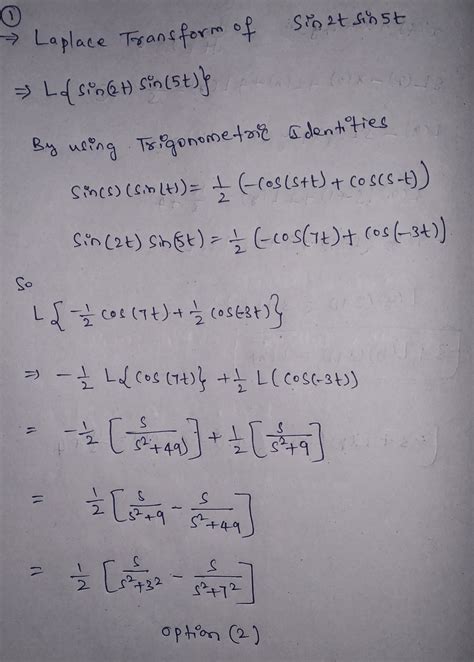 ①
⇒ Laplace Transform of Sin2t Sin5t
⇒ L{Sin(2t) Sin(5t)}
By using Trigonometric Identities
Sin(s)(Sin(t)) = 1/2 (-cos(s+t) + cos(s-t))
Sin(2t) Sin(5t) = 1/2 (-cos(7t) + cos(-3t))
So
L{-1/2 cos(7t) + 1/2 cos(-3t)}
⇒ -1/2 L{cos(7t)} + 1/2 L(cos(-3t))
= -1/2 [s/(s²+49)] + 1/2 [s/(s²+9)]
= 1/2 [s/(s²+9) - s/(s²+49)]
= 1/2 [s/(s²+3²) - s/(s²+7²)]
option (2)